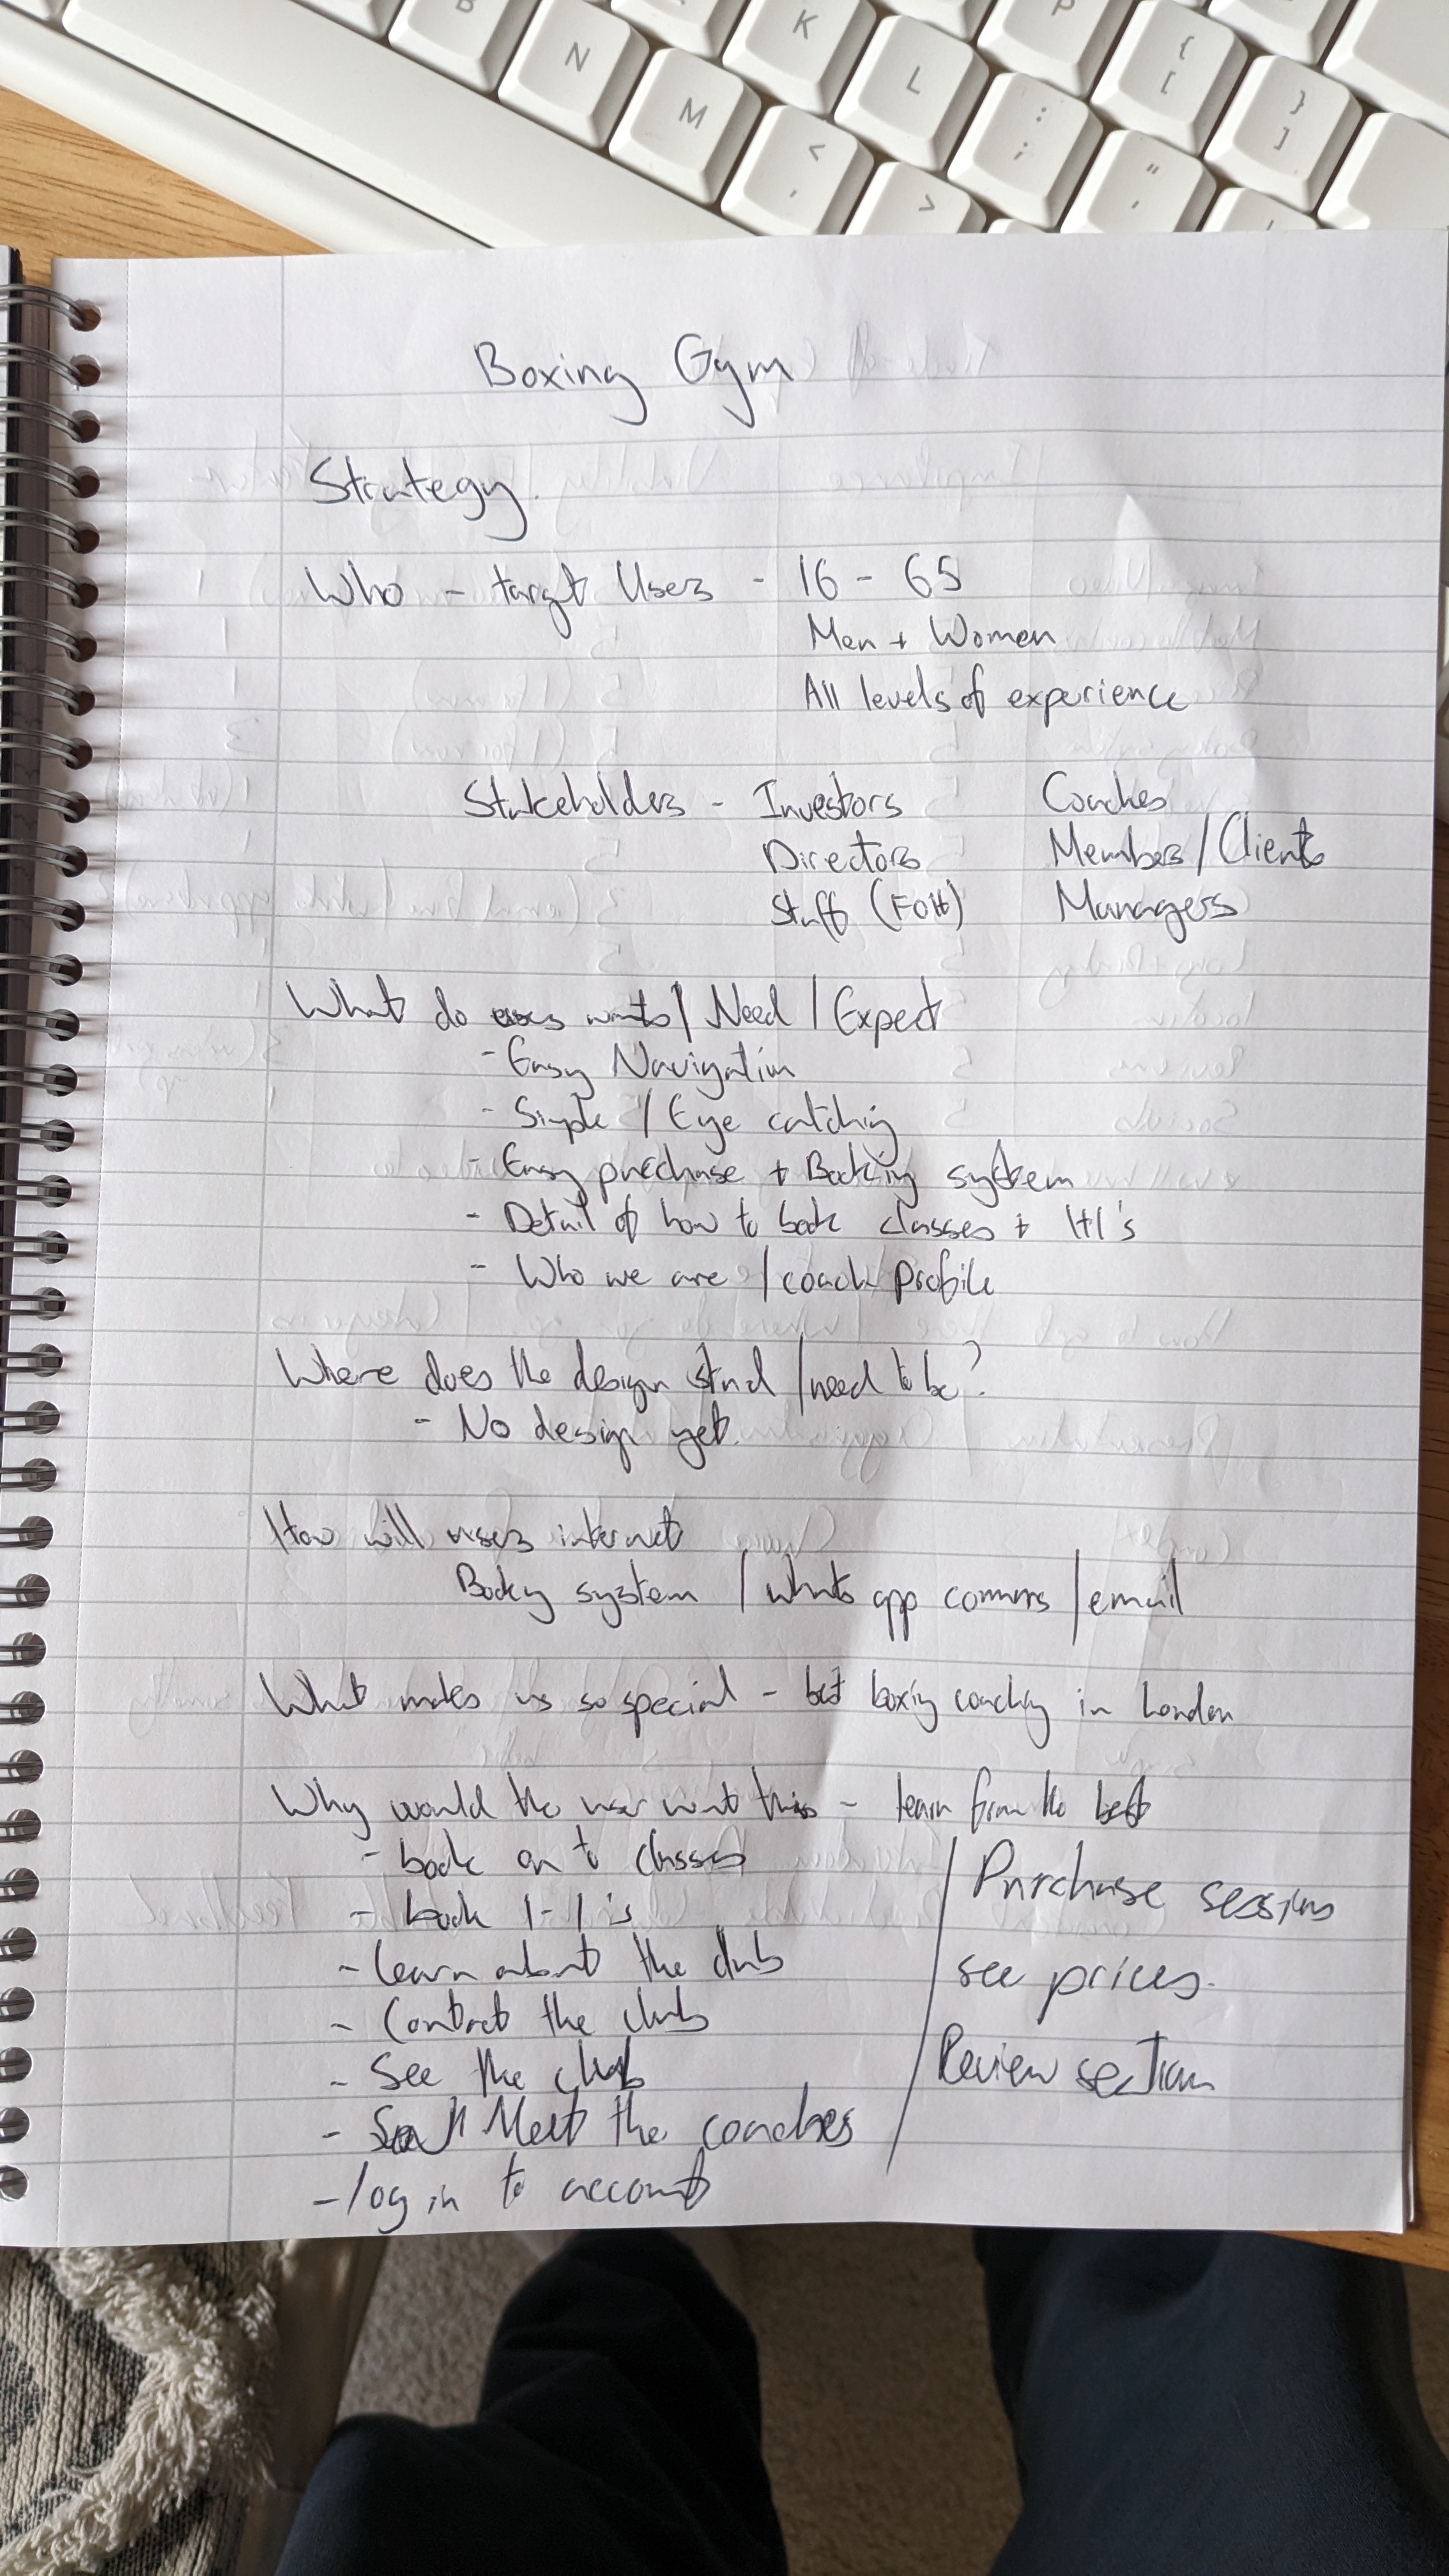 B
N
M
K
L
P
{
[
}
]
:
;
"
'
<
,
>
Boxing Gym
Strategy.
Who - target Users - 16 - 65
Men + Women
All levels of experience
Stakeholders - Investors Coaches
Directors Members / Clients
Staff (FOH) Managers
What do users wants / Need / Expect
- Easy Navigation
- Simple / Eye catching
- Easy purchase + Booking system
- Detail of how to book classes + 1+1's
- Who we are / coach profile
Where does the design stand / need to be?
- No design yet.
How will users internet
Booking system / whats app comms / email
What makes us so special - best boxing coaching in London
Why would the user want this - learn from the best
- book on to classes
- book 1-1's
- learn about the club
- Contact the club
- See the club
- Meet the coaches
- log in to account
Purchase sessions
see prices.
Review section